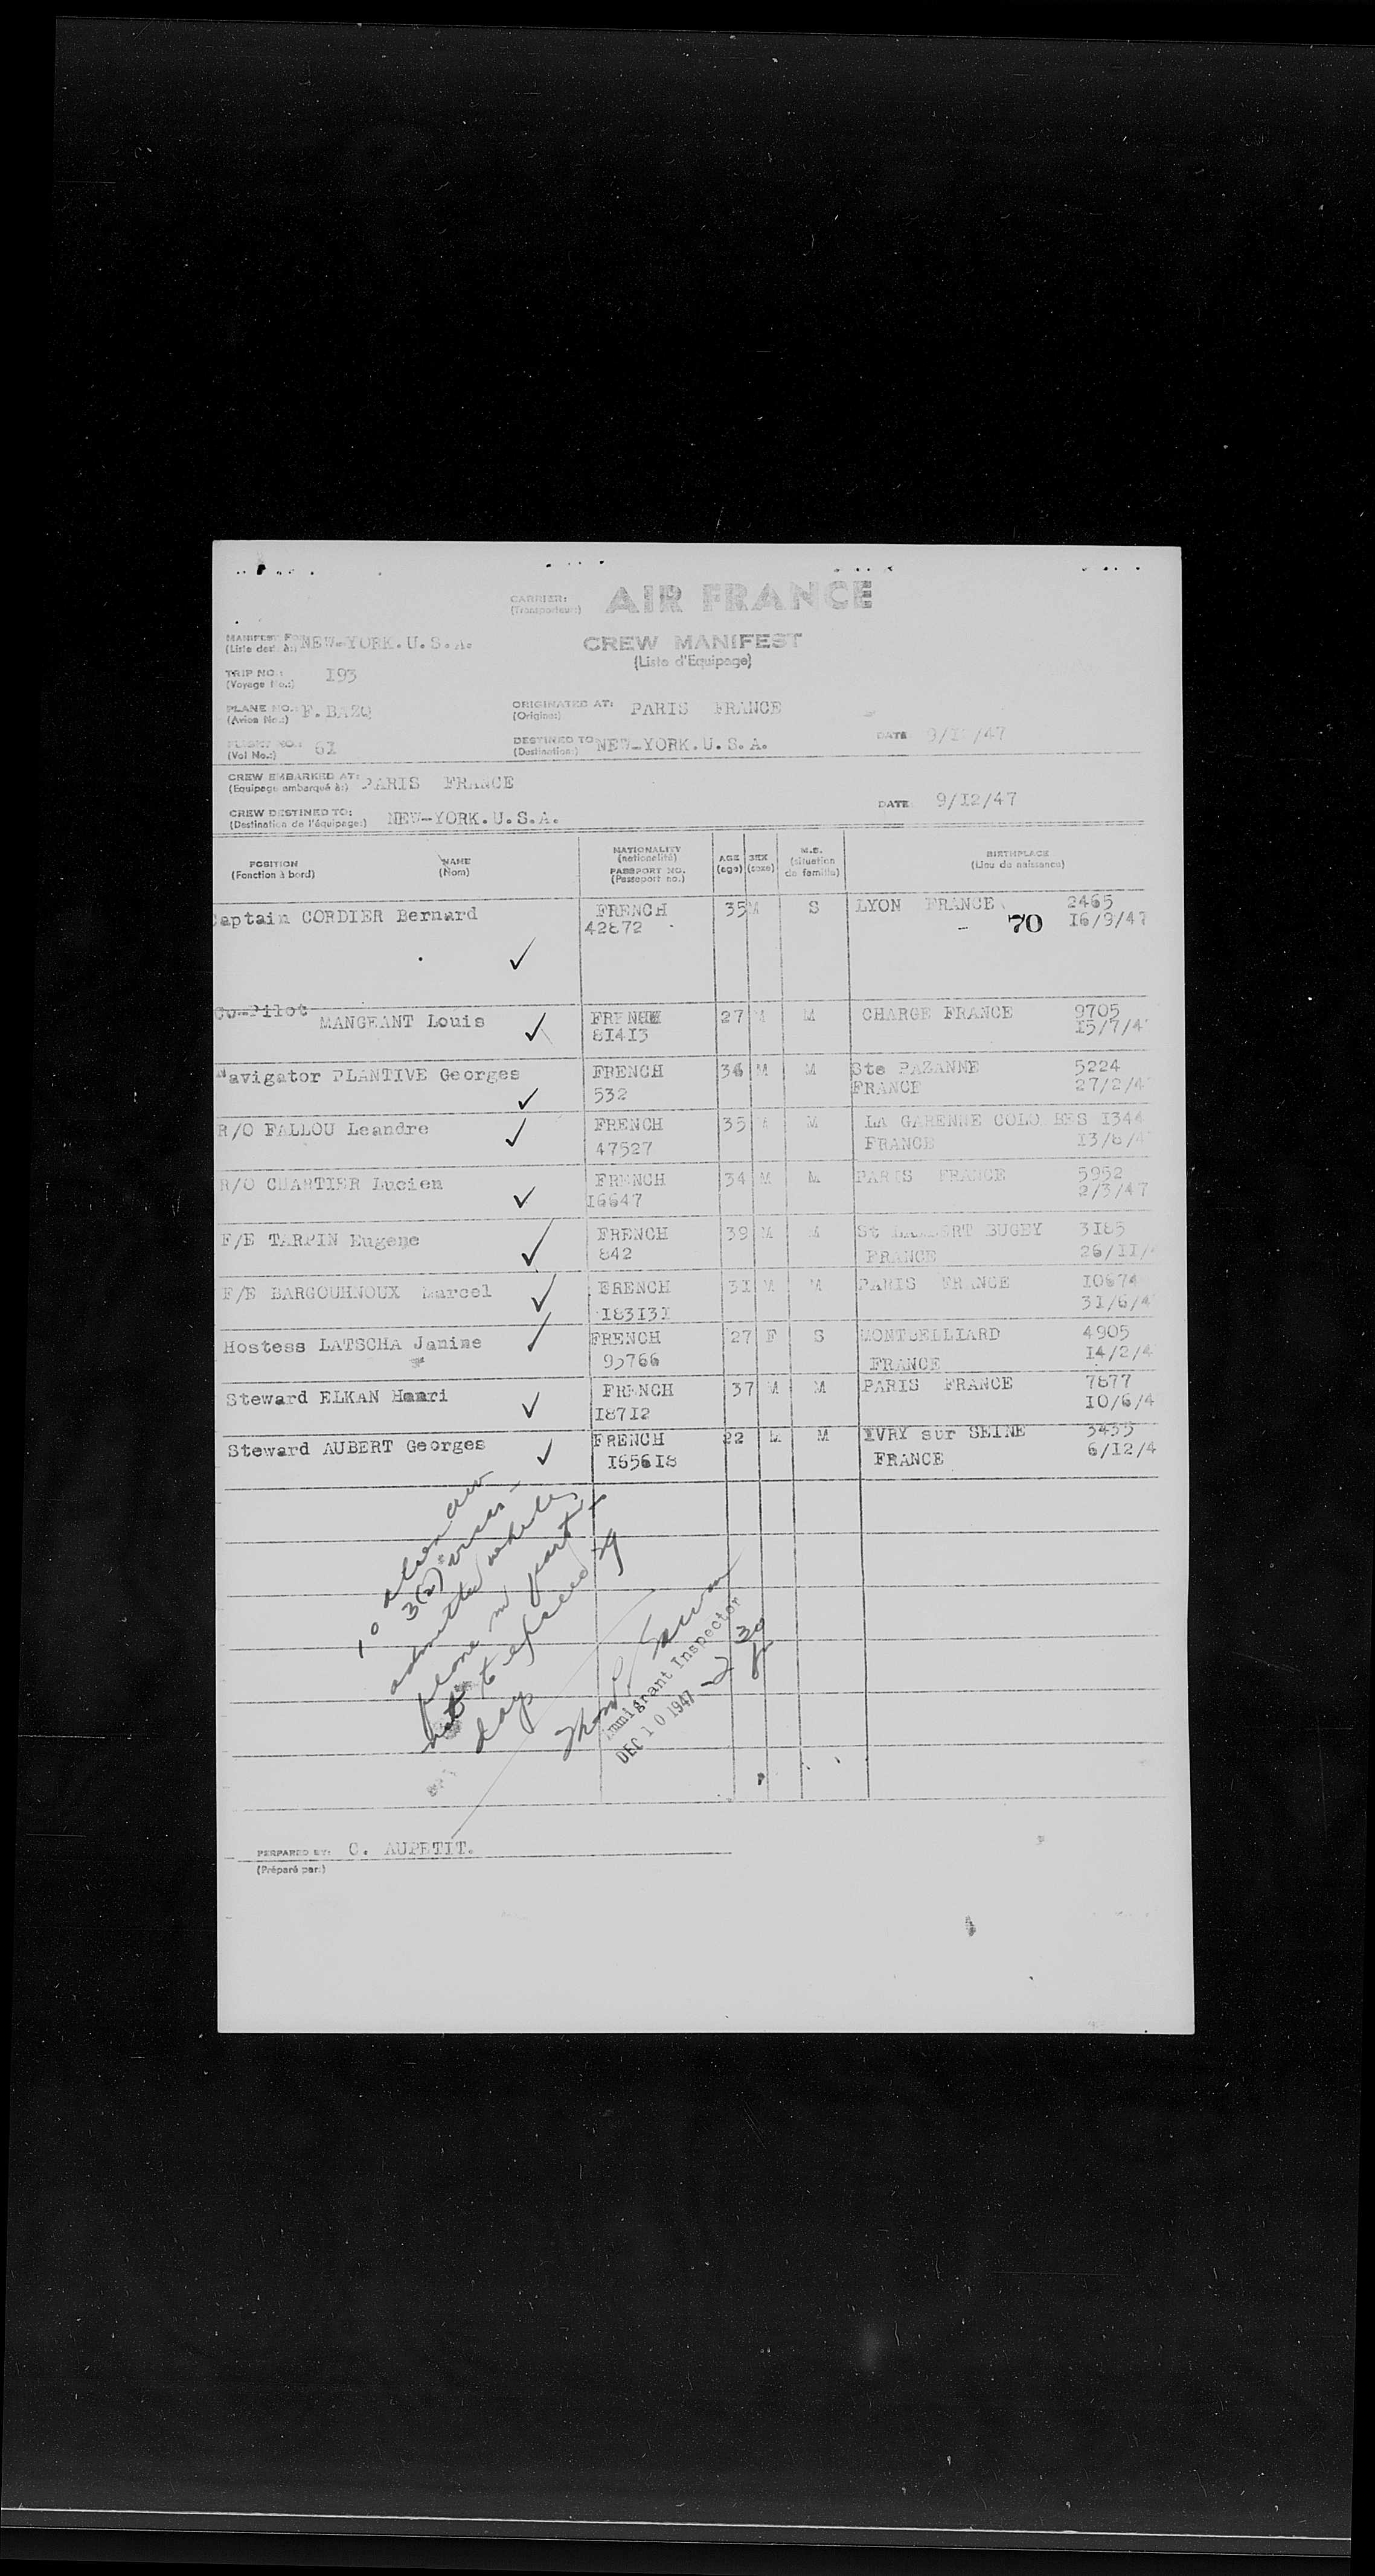 CARRIER: AIR FRANCE
(Transporteur:)
MANIFEST F NEW-YORK.U.S.A. CREW MANIFEST
(Liste dest. à:) (Liste d'Equipage)
TRIP NO.: I93
(Voyage No.:)
PLANE NO.: F.BAZQ ORIGINATED AT: PARIS FRANCE
(Avion No.:) (Origine:)
FLIGHT NO.: 6I DESTINED TO NEW-YORK.U.S.A. DATE 9/I2/47
(Vol No.:) (Destination:)
CREW EMBARKED AT: PARIS FRANCE
(Equipage embarqué à:)
CREW DESTINED TO: NEW-YORK.U.S.A. DATE 9/I2/47
(Destination de l'équipage:)
POSITION NAME NATIONALITY AGE SEX M.S. BIRTHPLACE
(Fonction à bord) (Nom) (nationalité) (age) (sexe) (situation de famille) (Lieu de naissance)
PASSPORT NO.
(Passeport no.)
Captain CORDIER Bernard FRENCH 35 M S LYON FRANCE 2465
42872 70 I6/9/47
Co-Pilot
MANGEANT Louis FRENCH 27 M M CHARGE FRANCE 9705
8I4I3 I5/7/4
Navigator PLANTIVE Georges FRENCH 36 M M Ste PAZANNE 5224
532 FRANCE 27/2/4
R/O FALLOU Leandre FRENCH 35 M M LA GARENNE COLO BES I344
47527 FRANCE I3/8/4
R/O CHARTIER Lucien FRENCH 34 M M PARIS FRANCE 5952
I6647 2/3/47
F/E TARPIN Eugene FRENCH 39 M M St BUGEY 3I85
842 FRANCE 26/II/
F/E BARGOUHNOUX Marcel FRENCH 3I M M PARIS FRANCE I0674
I83I3I 3I/6/4
Hostess LATSCHA Janine FRENCH 27 F S MONTBEILLIARD 4905
95766 FRANCE I4/2/4
Steward ELKAN Henri FRENCH 37 M M PARIS FRANCE 7877
I87I2 I0/6/4
Steward AUBERT Georges FRENCH 22 M M IVRY sur SEINE
I656I8 FRANCE 6/I2/4
10 alien crew
3(2) visas -
admitted while
plane in port -
not to exceed 29
days
Immigrant Inspector
DEC 10 1947
PERPARED BY: C. AUPETIT.
(Préparé par:)